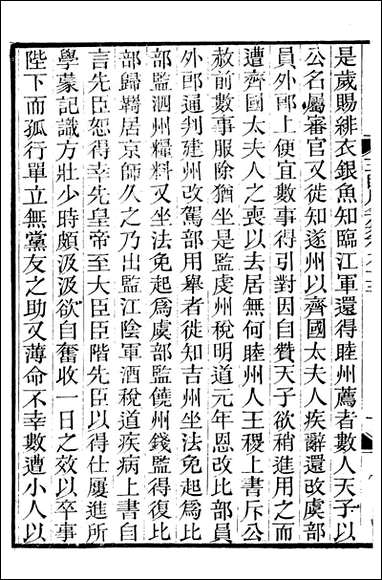 是歲賜緋衣銀魚知臨江軍還得睦州薦者數人天子以
公名屬審官又徙知遂州以齊國太夫人疾辭還改虞部
員外郎上便宜數事得引對因自贊天子欲稍進用之而
遭齊國太夫人之喪以去居無何睦州人王稷上書斥公
赦前數事服除猶坐是監虔州稅明道元年恩改比部員
外郎通判建州改駕部用舉者徙知吉州坐法免起爲比
部監泗州糧料又坐法免起爲虞部監饒州錢監得復比
部歸羇居京師久之乃出監江陰軍酒稅道疾病上書自
言先臣恕得幸先皇帝至大臣臣階先臣以得仕屢進所
學蒙記識方壯少時頗汲汲欲自奮收一日之效以卒事
陛下而孤行單立無黨友之助又薄命不幸數遭小人以